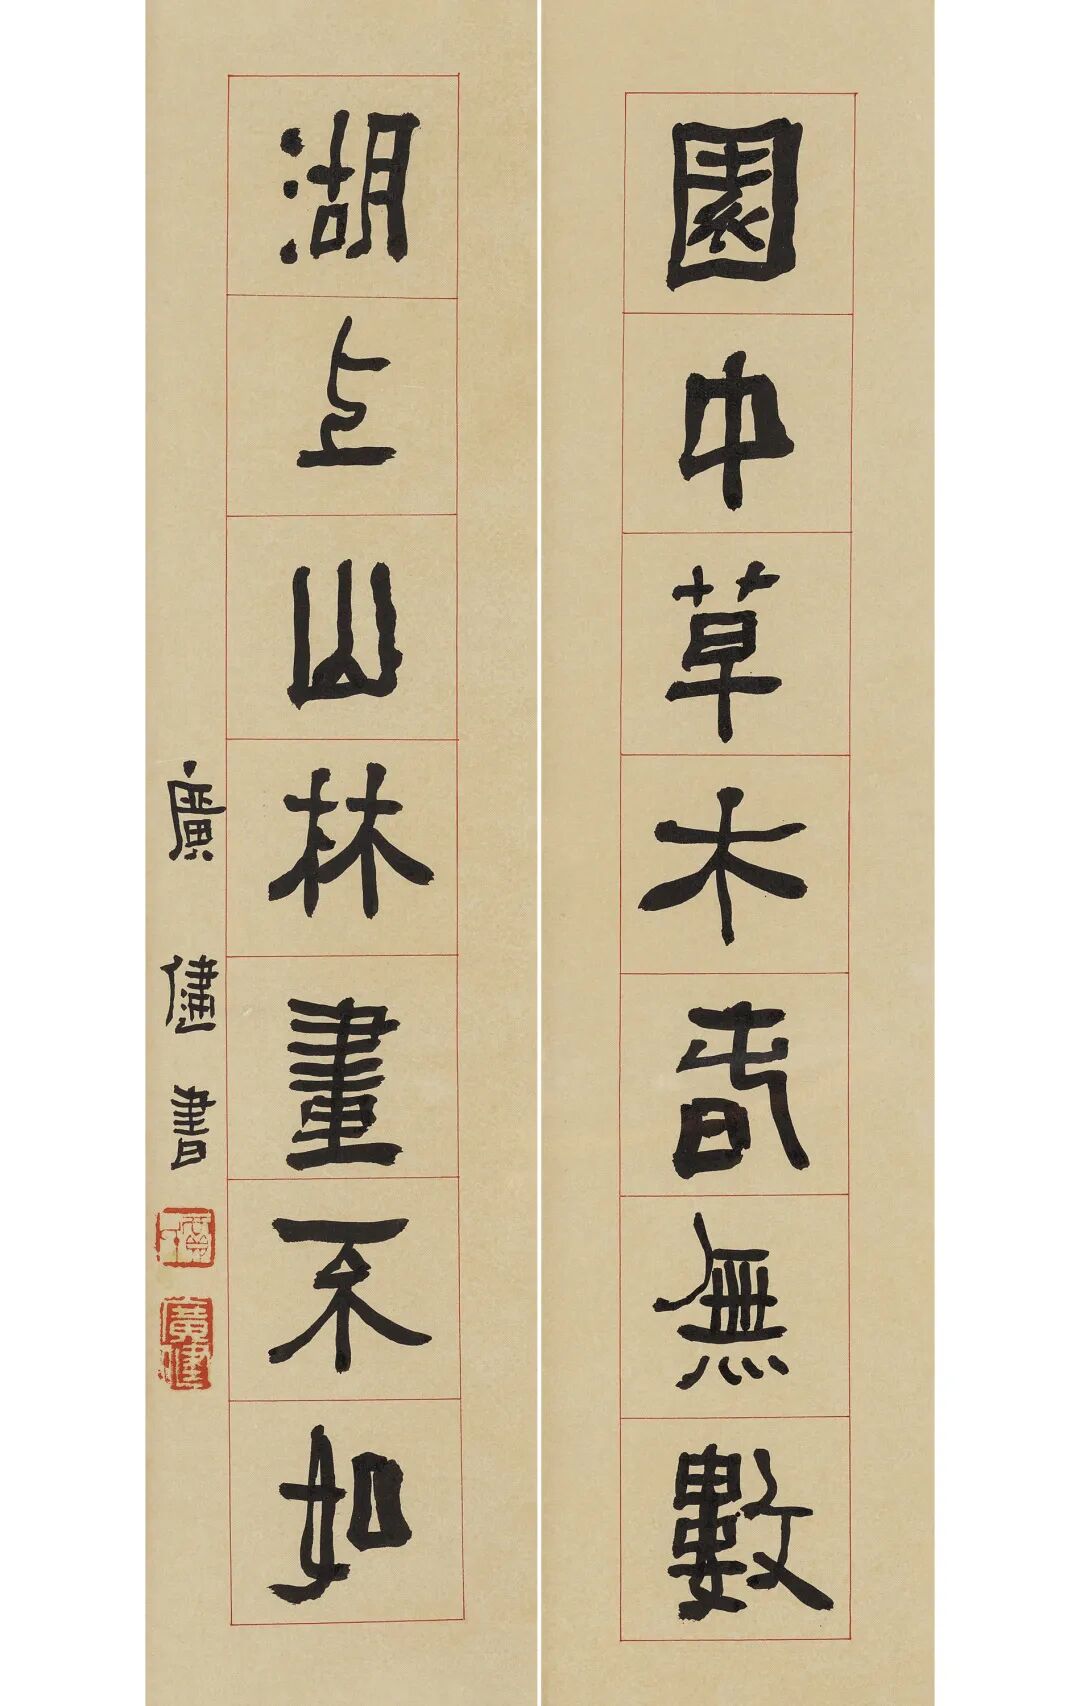 園中草木春無數
湖上山林畫不如
廣健書
廣健